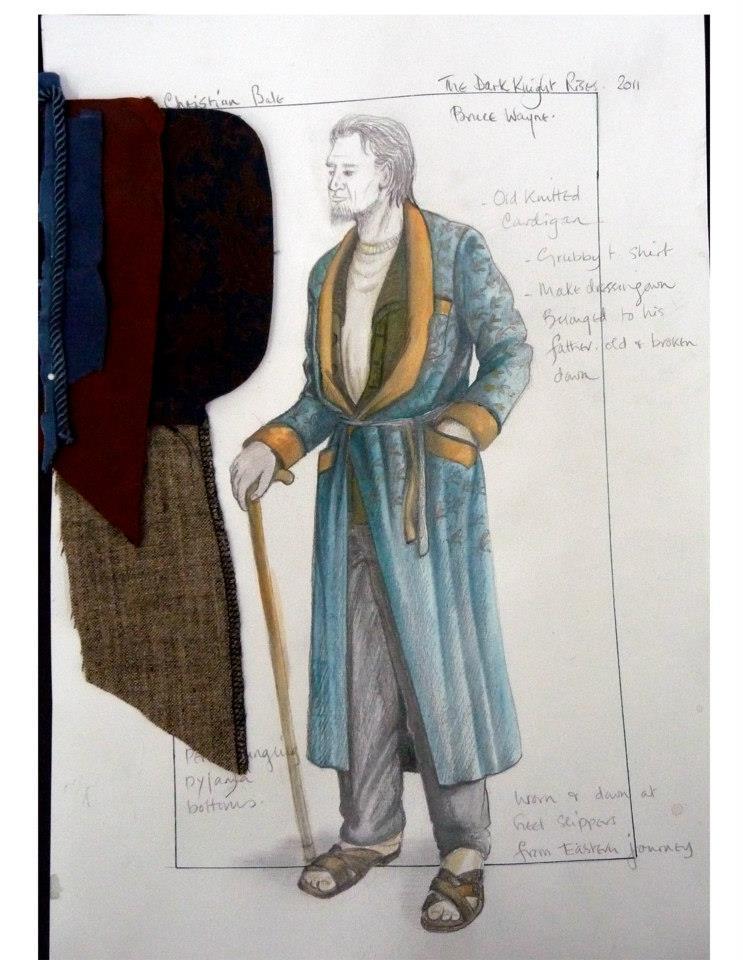 Christian Bale
The Dark Knight Rises. 2011
Bruce Wayne.
- Old Knitted
Cardigan
- Grubby t shirt
- Make dressing own
Belonged to his
father. old & broken
down
Pyjama
bottoms.
Worn & down at
heel slippers
from Eastern journey